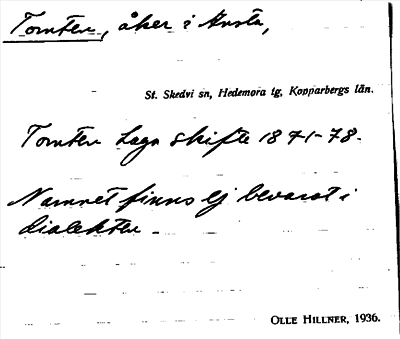 Tomten, åker i Knsta,
St. Skedvi sn, Hedemora tg, Kopparbergs län.
Tomten Laga skifte 1871-78.
Namnet finns ej bevarat i
dialekten -
OLLE HILLNER, 1936.